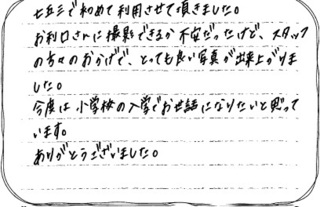 七五三で初めて利用させて頂きました。
お利口さんに撮影できるか不安だったけど、スタッフ
の方々のおかげで、とっても良い写真が出来上がりま
した。
今度は小学校の入学でお世話になりたいと思って
います。
ありがとうございました。